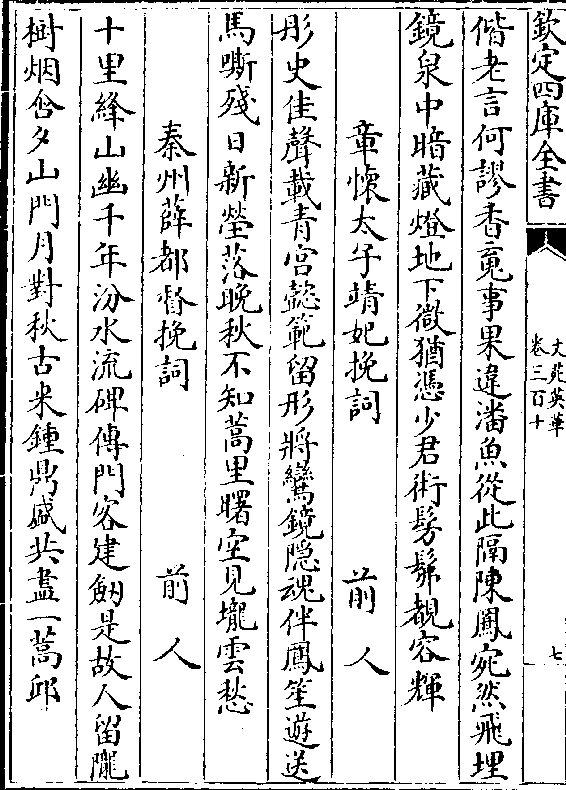 欽定四庫全書
文苑英華
卷三百十
七
偕老言何謬香魂事果違潘魚從此隔陳鳳宛然飛埋
鏡泉中暗藏燈地下微猶憑少君術髣髴覩容輝
章懷太子靖妃挽詞　前人
彤史佳聲載青宮懿範留形將鸞鏡隠魂伴鳳笙遊送
馬嘶殘日新塋落晚秋不知蒿里曙空見壠雲愁
秦州薛都督挽詞　前人
十里絳山幽千年汾水流碑傳門客建劒是故人留隴
樹烟含夕山門月對秋古来鍾鼎盛共盡一蒿邱